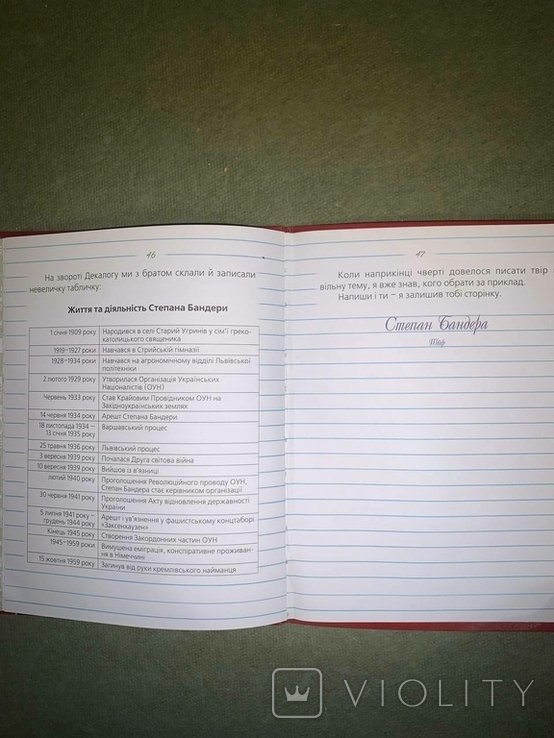 46
На звороті Декалогу ми з братом склали й записали
невеличку табличку:
Життя та діяльність Степана Бандери
1 січня 1909 року Народився в селі Старий Угринів у сім'ї греко-
католицького священика
1919–1927 роки Навчався в Стрийській гімназії
1928–1934 роки Навчався на агрономічному відділі Львівської
політехніки
2 лютого 1929 року Утворилася Організація Українських
Націоналістів (ОУН)
Червень 1933 року Став Крайовим Провідником ОУН на
Західноукраїнських землях
14 червня 1934 року Арешт Степана Бандери
18 листопада 1934 – Варшавський процес
13 січня 1935 року
25 травня 1936 року Львівський процес
3 вересня 1939 року Почалася Друга світова війна
10 вересня 1939 року Вийшов із в'язниці
лютий 1940 року Проголошення Революційного проводу ОУН,
Степан Бандера стає керівником організації
30 червня 1941 року Проголошення Акту відновлення державності
України
5 липня 1941 року – Арешт і ув'язнення у фашистському концтаборі
грудень 1944 року «Заксенхаузен»
Кінець 1945 року Створення Закордонних частин ОУН
1945–1959 роки Вимушена еміграція, конспіративне проживан-
ня в Німеччині
15 жовтня 1959 року Загинув від руки кремлівського найманця
47
Коли наприкінці чверті довелося писати твір
вільну тему, я вже знав, кого обрати за приклад.
Напиши і ти – я залишив тобі сторінку.
Степан Бандера
Твір
VIOLITY